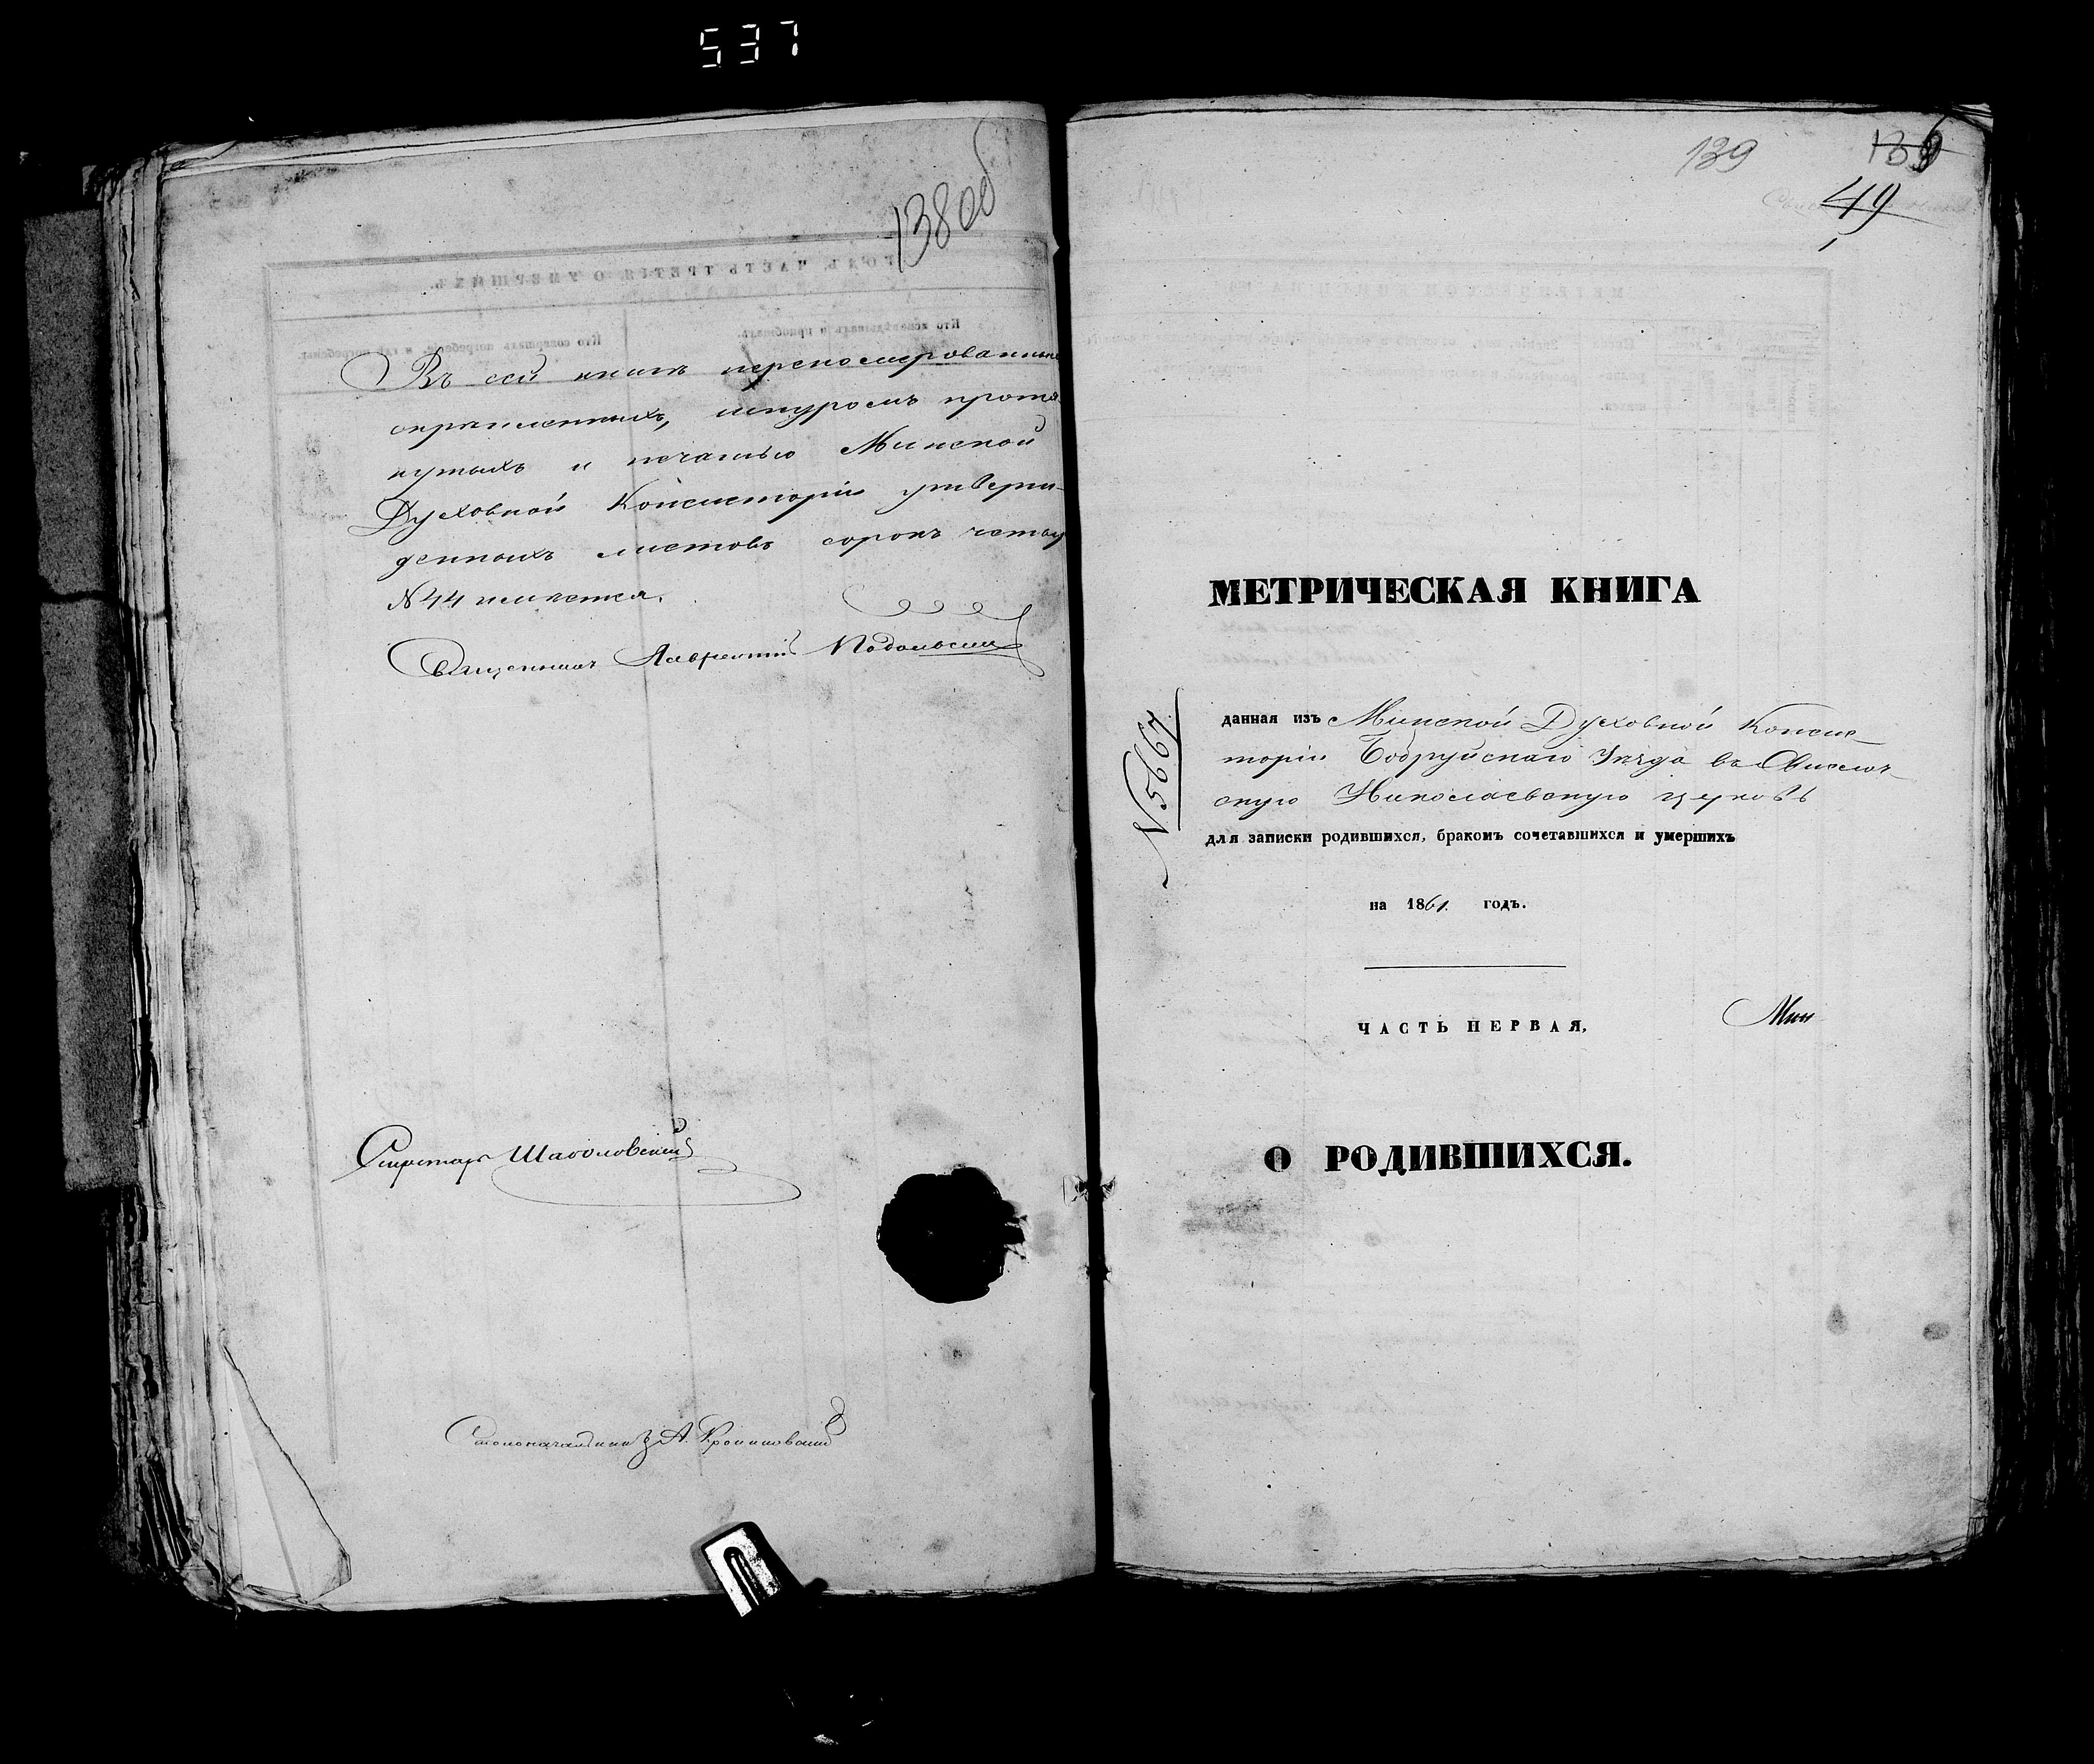 537
138 об
Въ сей книгѣ перенумерованныхъ
скрѣпленныхъ, шнуромъ протя
нутыхъ и печатью Минской
Духовной Консисторіи утверж-
денныхъ листовъ сорокъ четыр
№ 44 имѣется.
Священникъ Лаврентій Подольскій
Секретарь Шаболовскій
Столоначальникъ А.
139
139
49
МЕТРИЧЕСКАЯ КНИГА
№ 5667
данная изъ Минской Духовной Консис-
торіи Бобруйскаго Уѣзда въ Свислоч-
скую Николаевскую церковь
для записки родившихся, бракомъ сочетавшихся и умершихъ
на 1861. годъ.
ЧАСТЬ ПЕРВАЯ,
Мин
О РОДИВШИХСЯ.